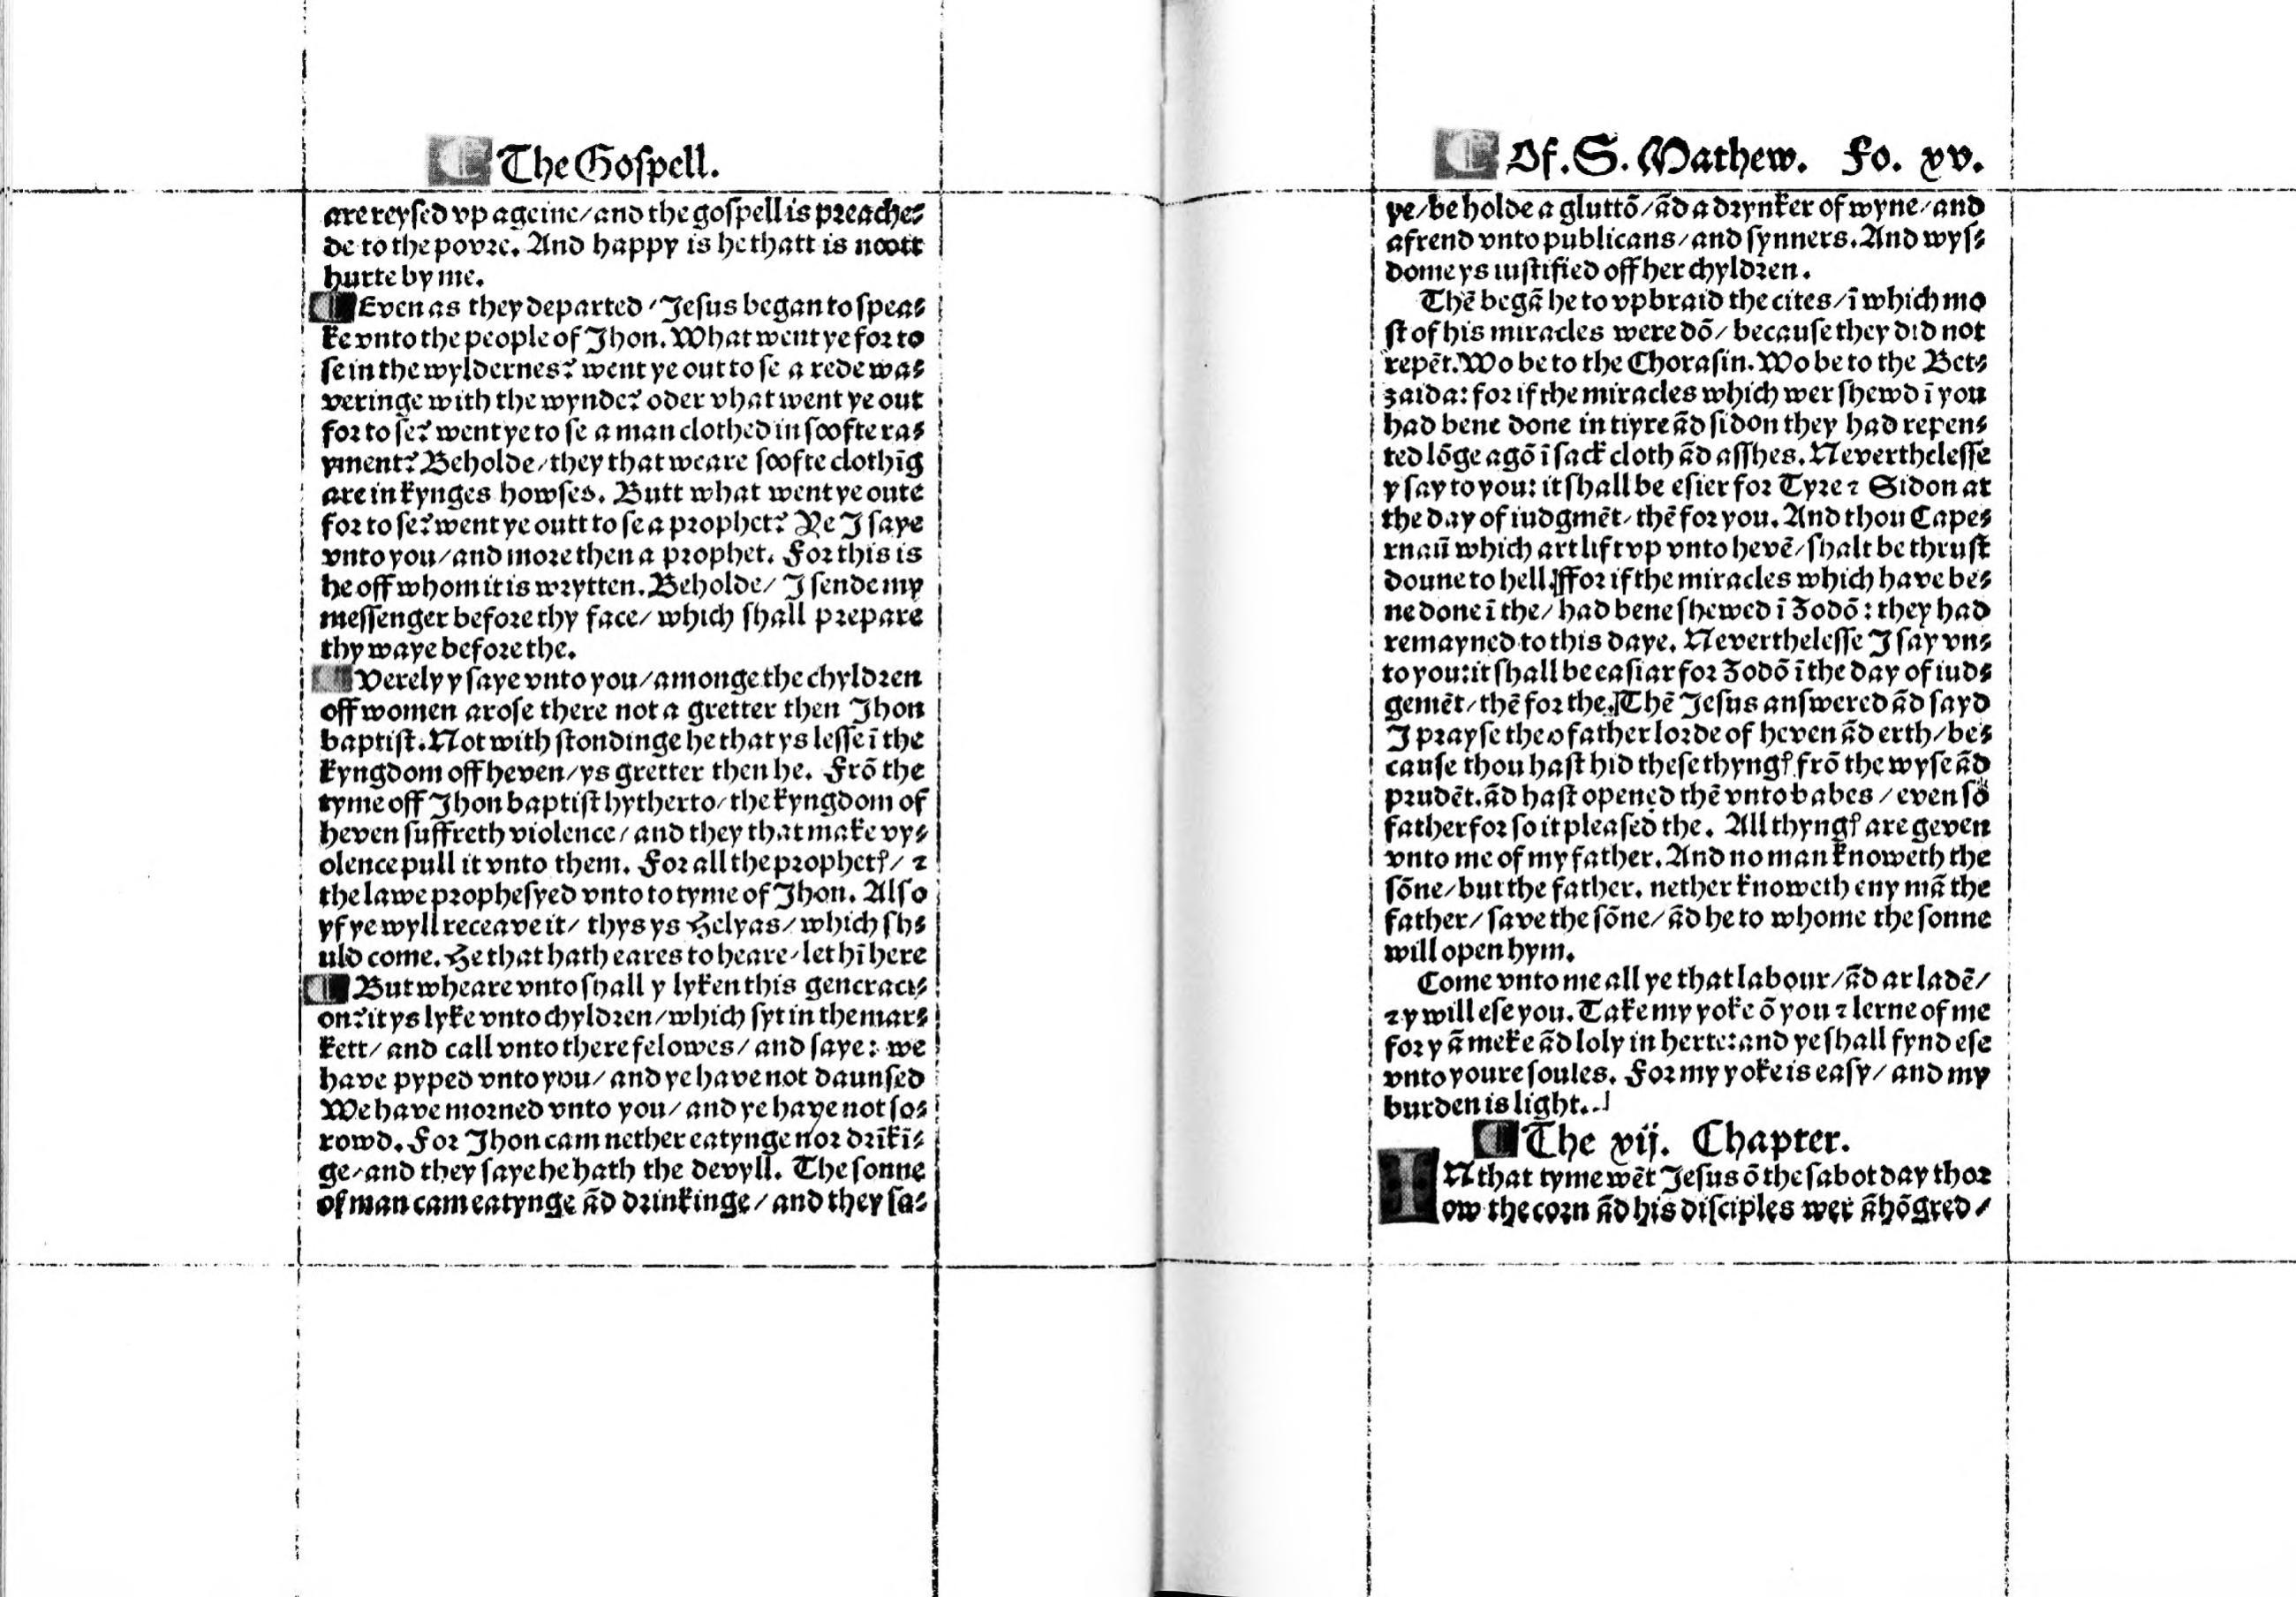 The Goſpell.
are reyſed vp ageine/and the goſpell is preache⸗
de to the povre. And happy is he thatt is noott
hurte by me.
¶ Even as they departed/Jeſus began to ſpea⸗
ke vnto the people of Jhon. What went ye for to
ſe in the wyldernes? went ye out to ſe a rede wa⸗
veringe with the wynde? oder vhat went ye out
for to ſe? went ye to ſe a man clothed in ſoofte ra⸗
yment? Beholde/they that weare ſoofte clothīg
are in kynges howſes. Butt what went ye oute
for to ſe? went ye outt to ſe a prophet? Ye J ſaye
vnto you/and more then a prophet. For this is
he off whom it is wrytten. Beholde/ J ſende my
meſſenger before thy face/ which ſhall prepare
thy waye before the.
¶ Verely y ſaye vnto you/amonge the chyldren
off women aroſe there not a gretter then Jhon
baptiſt. Not with ſtondinge he that ys leſſe ī the
kyngdom off heven/ys gretter then he. Frō the
tyme off Jhon baptiſt hytherto/the kyngdom of
heven ſuffreth violence/and they that make vy⸗
olence pull it vnto them. For all the prophetꝭ/ ⁊
the lawe propheſyed vnto to tyme of Jhon. Alſo
yf ye wyll receave it/ thys ys Helyas/which ſh⸗
uld come. He that hath eares to heare/let hī here
¶ But wheare vnto ſhall y lyken this generaci⸗
on? it ys lyke vnto chyldren/which ſyt in the mar⸗
kett/ and call vnto there felowes/and ſaye: we
have pyped vnto you/and ye have not daunſed
We have morned vnto you/and ye have not ſo⸗
rowd. For Jhon cam nether eatynge nor drīkī⸗
ge/and they ſaye he hath the devyll. The ſonne
of man cam eatynge ād drinkinge/and they ſa⸗
Of. S. Mathew. Fo. xv.
ye/be holde a gluttō/ād a drynker of wyne/and
afrend vnto publicans/and ſynners. And wyſ⸗
dome ys iuſtified off her chyldren.
Thē begā he to vpbraid the cites/ī which mo
ſt of his miracles were dō/ becauſe they did not
repēt. Wo be to the Choraſin. Wo be to the Bet⸗
zaida: for if the miracles which wer ſhewd ī you
had bene done in tiyre ād ſidon they had repen⸗
ted lōge agō ī ſack cloth ād aſſhes. Nevertheleſſe
y ſay to you: it ſhall be eſier for Tyre ⁊ Sidon at
the day of iudgmēt/ thē for you. And thou Cape⸗
rnaū which art lift vp vnto hevē/ſhalt be thruſt
doune to hell. ffor if the miracles which have be⸗
ne done ī the/ had bene ſhewed ī Zodō: they had
remayned to this daye. Nevertheleſſe J ſay vn⸗
to you: it ſhall be eaſiar for Zodō ī the day of iud⸗
gemēt/thē for the. Thē Jeſus anſwered ād ſayd
J prayſe the o father lorde of heven ād erth/be⸗
cauſe thou haſt hid theſe thyngꝭ frō the wyſe ād
prudēt. ād haſt opened thē vnto babes / even ſo
father for ſo it pleaſed the. All thyngꝭ are geven
vnto me of my father. And no man knoweth the
ſōne/but the father. nether knoweth eny mā the
father/ ſave the ſōne/ād he to whome the ſonne
will open hym.
Come vnto me all ye that labour/ād ar ladē/
⁊ y will eſe you. Take my yoke ō you ⁊ lerne of me
for y ā meke ād loly in herte: and ye ſhall fynd eſe
vnto youre ſoules. For my yoke is eaſy/ and my
burden is light.
¶ The xij. Chapter.
IN that tyme wēt Jeſus ō the ſabot day thor
ow the corn ād his diſciples wer āhōgred/